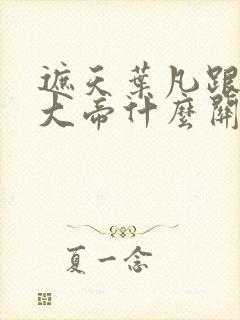 遮天葉凡跟
大帝什麼關
夏一念